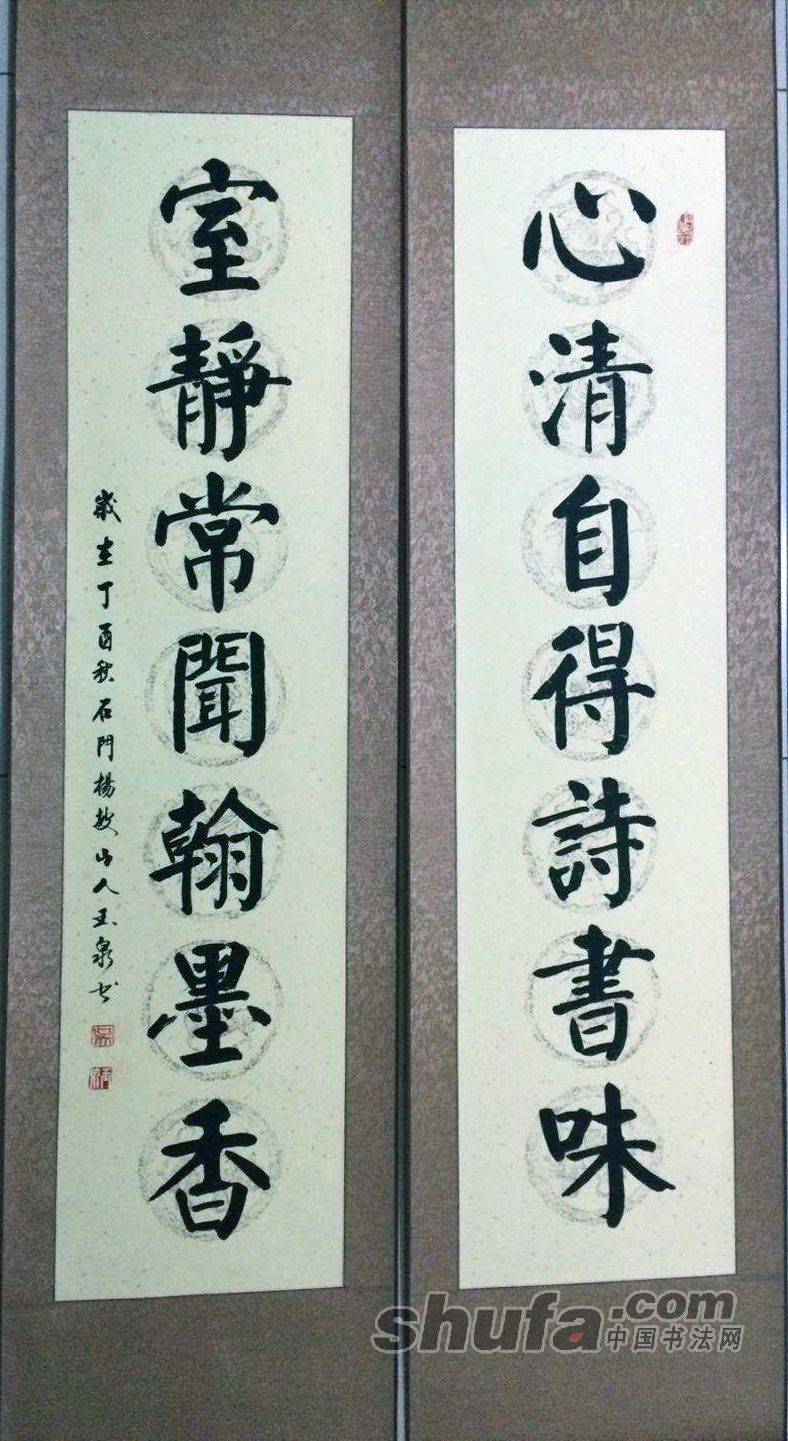 心清自得詩書味
室靜常聞翰墨香
歲在丁酉秋石門楊敖山人玉泉书
shufa.com
中国书法网